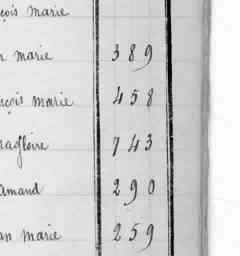 çois marie
marie 389
nçois marie 458
agloire 743
amand 290
an marie 259